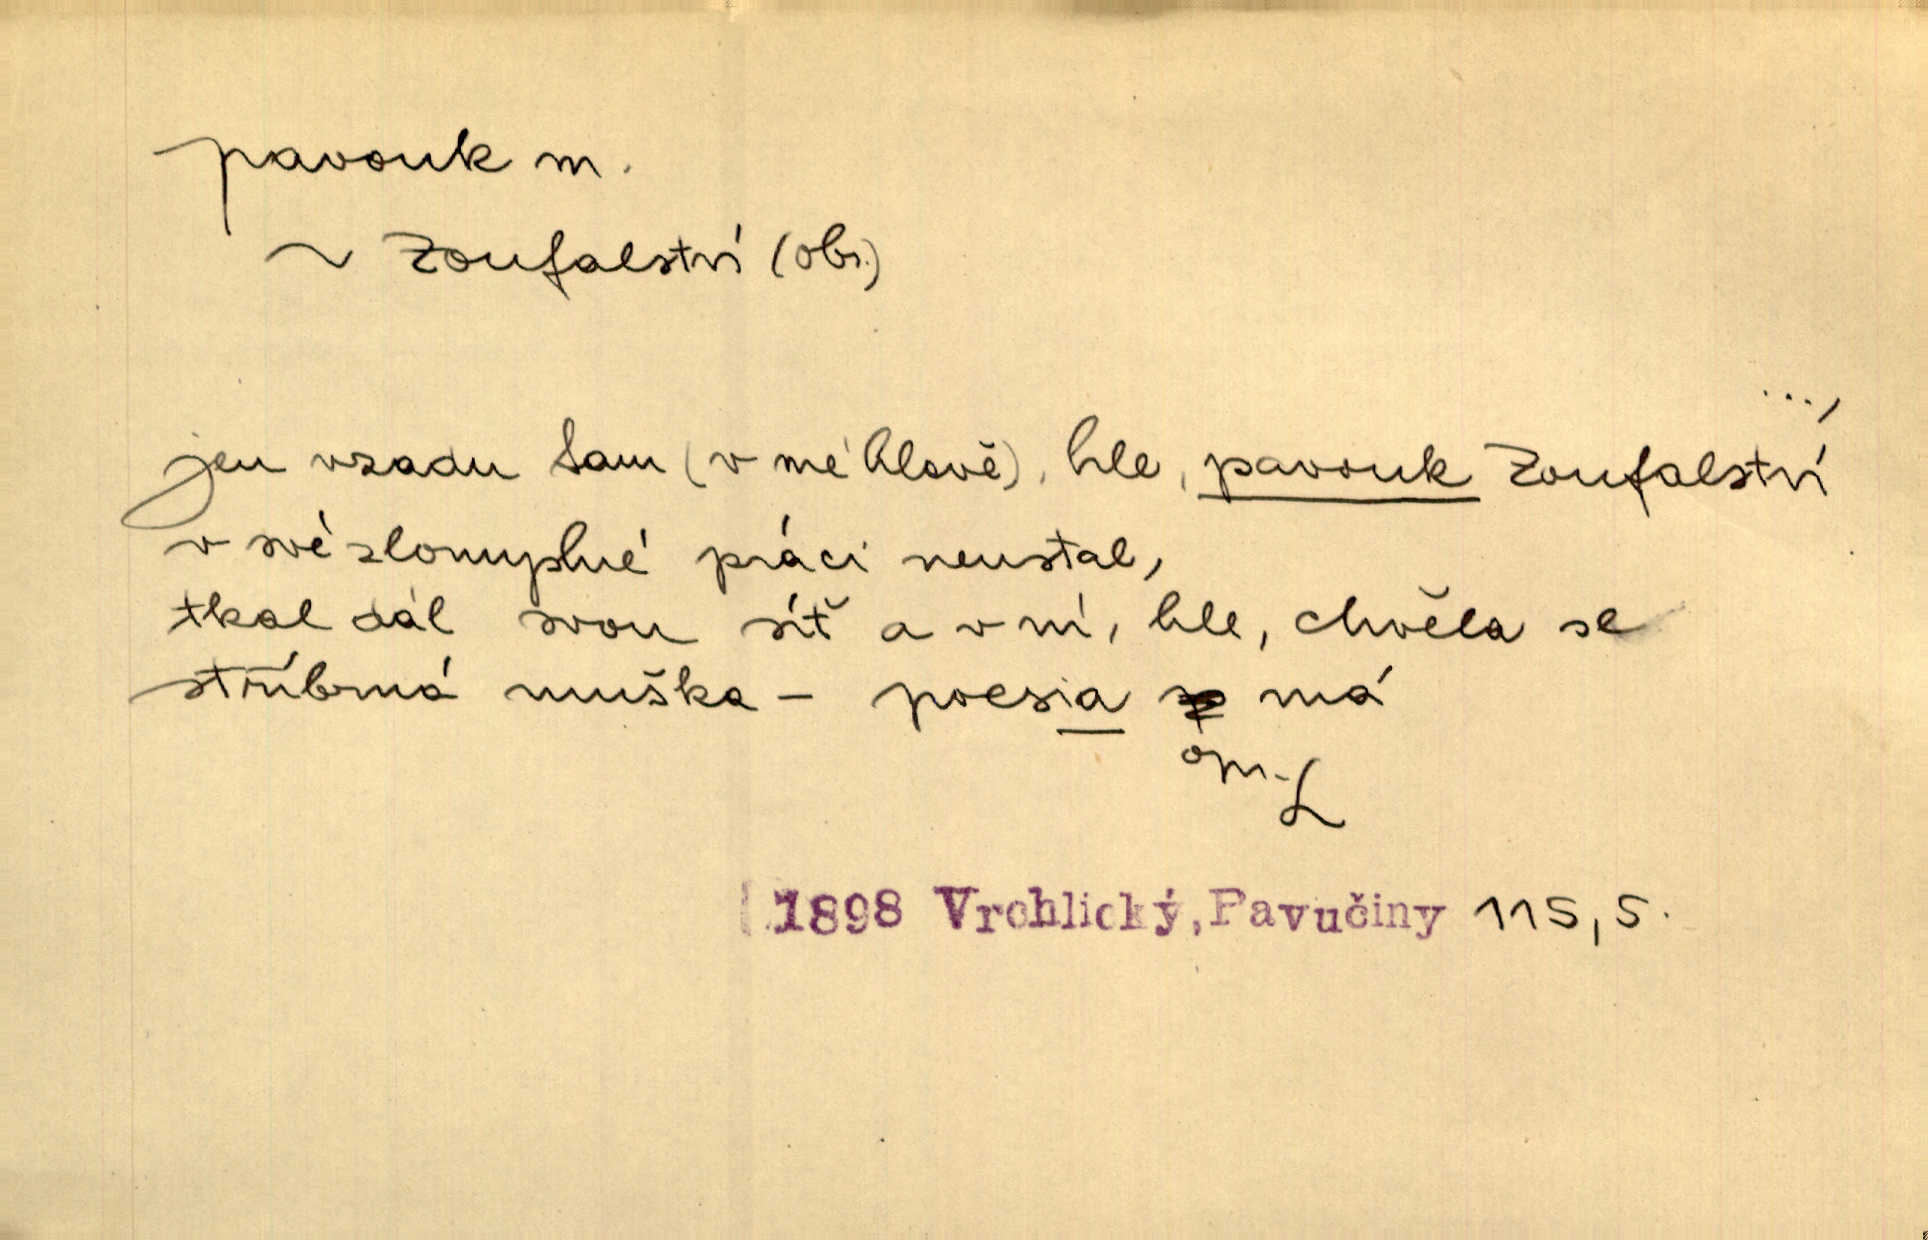 pavouk m.
~ Zoufalství (obr.)
...,
jen vzadu tam (v mé hlavě), hle, pavouk Zoufalství
v své zlomyslné práci neustal,
tkal dál svou síť a v ní, hle, chvěla se
stříbrná muška – poesia má
opr. L
1898 Vrchlický, Pavučiny 115,5.